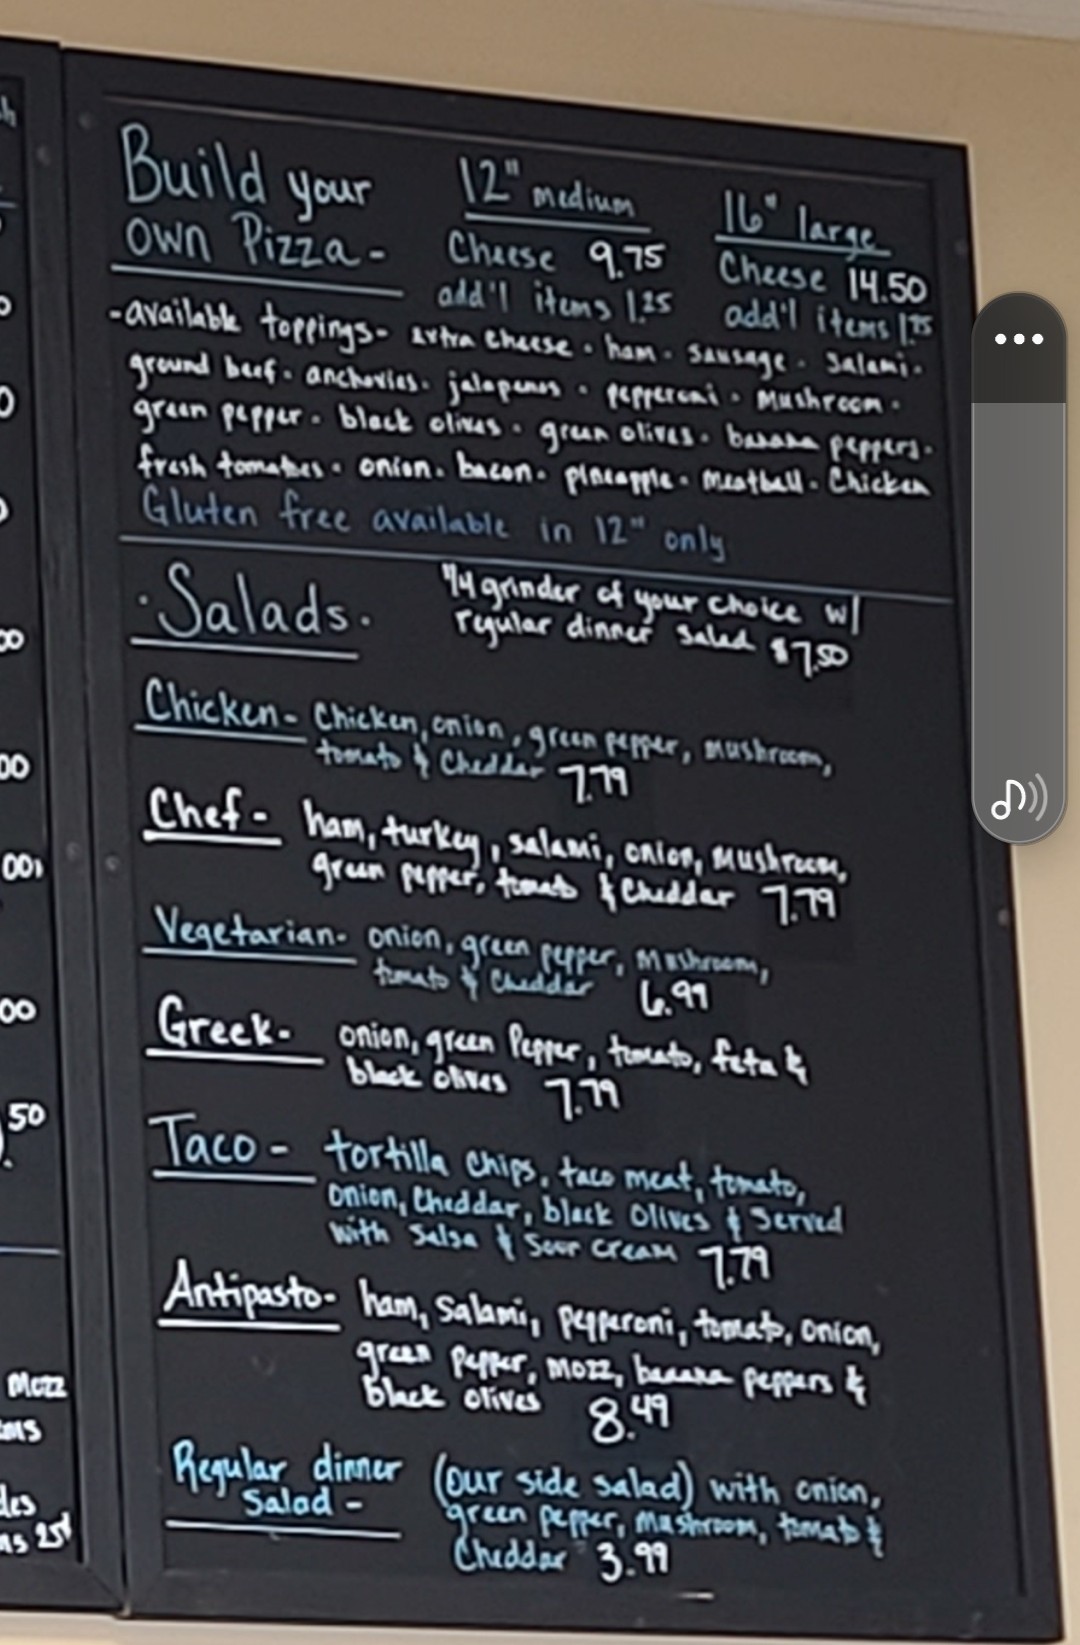 Build your
own Pizza -
12" medium
Cheese 9.75
add'l items 1.25
16" large
Cheese 14.50
add'l items 1.75
-available toppings- extra cheese • ham • sausage • Salami •
ground beef • anchovies • jalapenos • pepperoni • Mushroom •
green pepper • black olives • green olives • banana peppers •
fresh tomatoes • onion • bacon • pineapple • Meatball • Chicken
Gluten free available in 12" only
• Salads •
1/4 grinder of your choice w/
regular dinner salad $7.50
Chicken - Chicken, onion, green pepper, mushroom,
tomato & Cheddar 7.79
Chef - ham, turkey, salami, onion, Mushroom,
green pepper, tomato & Cheddar 7.79
Vegetarian - onion, green pepper, Mushroom,
tomato & Cheddar 6.99
Greek - onion, green Pepper, tomato, feta &
black olives 7.79
Taco - tortilla chips, taco meat, tomato,
Onion, Cheddar, black Olives & Served
with Salsa & Sour cream 7.79
Antipasto - ham, Salami, pepperoni, tomato, onion,
green pepper, mozz, banana peppers &
black olives 8.49
Regular dinner
Salad -
(our side salad) with onion,
green pepper, mushroom, tomato &
Cheddar 3.99
00
00
50
Mozz